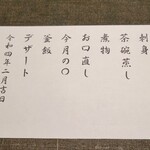 刺身
茶碗蒸し
煮物
お口直し
今月の〇
釜飯
デザート
令和四年二月吉日